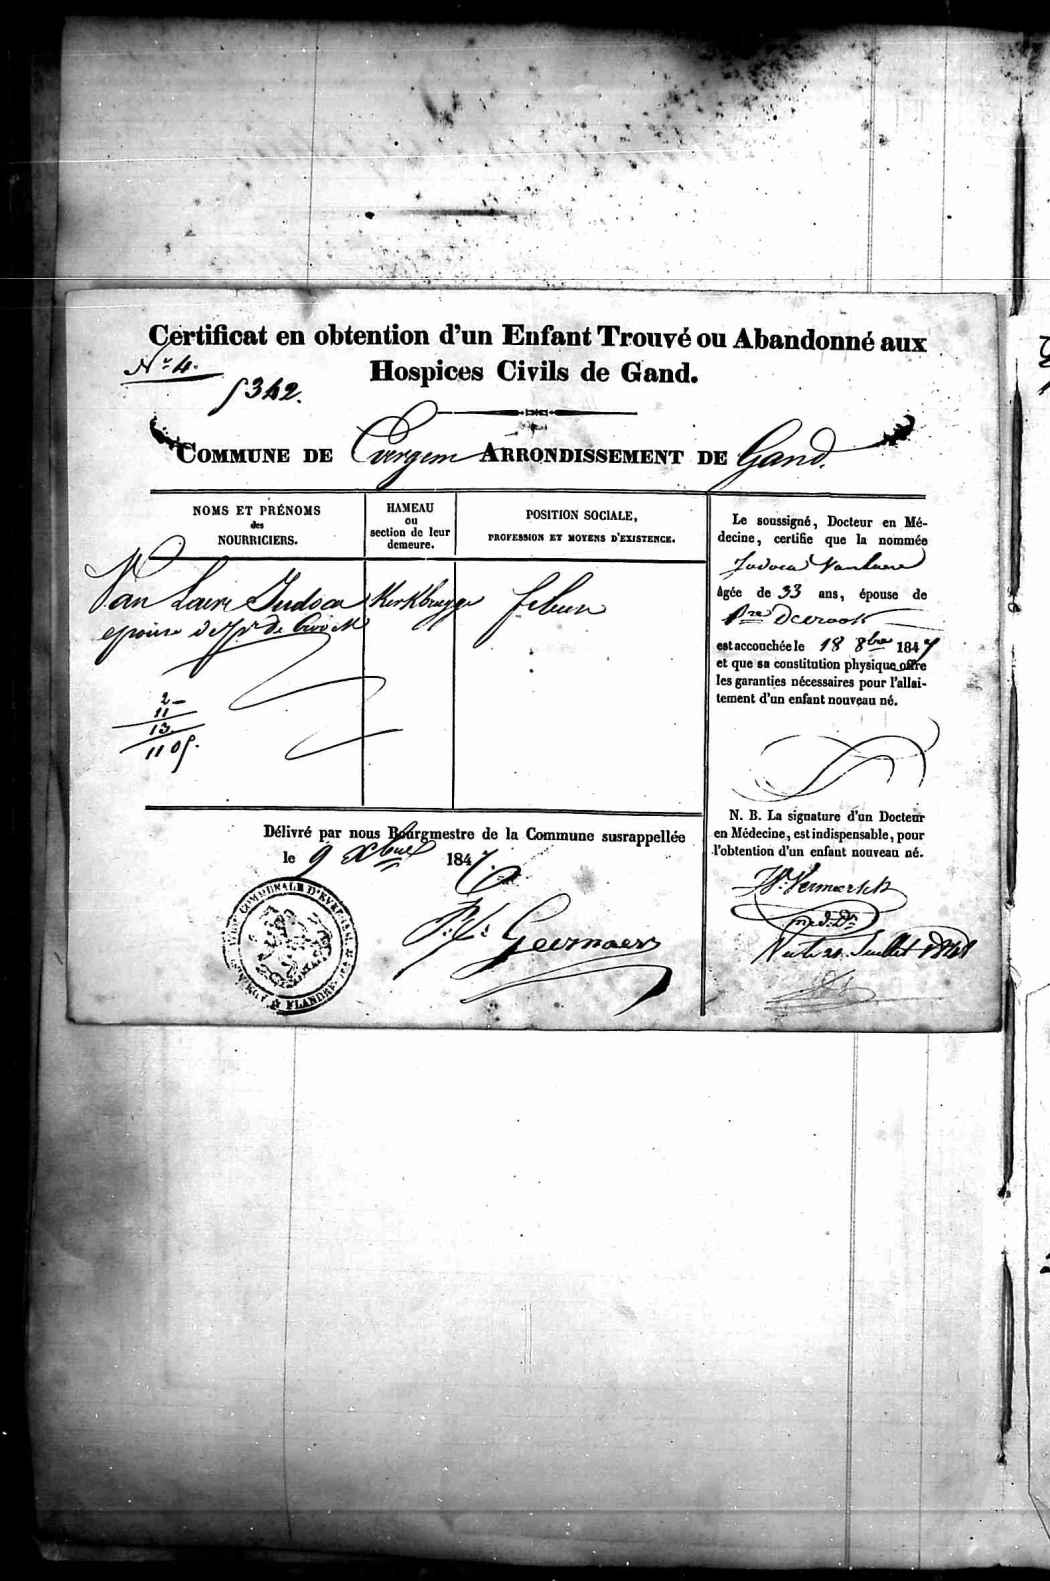 Certificat en obtention d'un Enfant Trouvé ou Abandonné aux
Hospices Civils de Gand.
Nr. 4.
5342.
COMMUNE DE Evergem ARRONDISSEMENT DE Gand.
NOMS ET PRÉNOMS
des
NOURRICIERS.
HAMEAU
ou
section de leur
demeure.
POSITION SOCIALE,
PROFESSION ET MOYENS D'EXISTENCE.
Van Laere Judoca
epouse de
Kerkbrugge
2-
11
13
1105.
Délivré par nous Bourgmestre de la Commune susrappellée
le 9 Xbre 1847.
P. L. Geernaert
Le soussigné, Docteur en Mé-
decine, certifie que la nommée
Judoca Vanlaere
âgée de 33 ans, épouse de
est accouchée le 18 8bre 1847
et que sa constitution physique offre
les garanties nécessaires pour l'allai-
tement d'un enfant nouveau né.
N. B. La signature d'un Docteur
en Médecine, est indispensable, pour
l'obtention d'un enfant nouveau né.
med. Dr
21 Juillet 1848